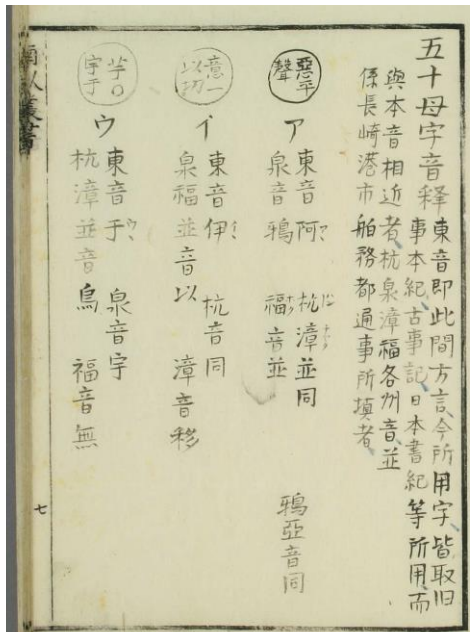 五十母字音释 東音即此間方言、今所用字、皆取旧
事本紀、古事記、日本書紀等所用、而
與本音相近者、杭泉漳福各州音、並
係長崎港市舶務都通事所填者、
惡平聲
ア 東音阿ア 杭漳並同
泉音鴉 福音並
鴉亞音同
意一以切
イ 東音伊イ 杭音同
泉福並音以 漳音移
芋〇宇于
ウ 東音于ウ 泉音宇
杭漳並音烏 福音無
七